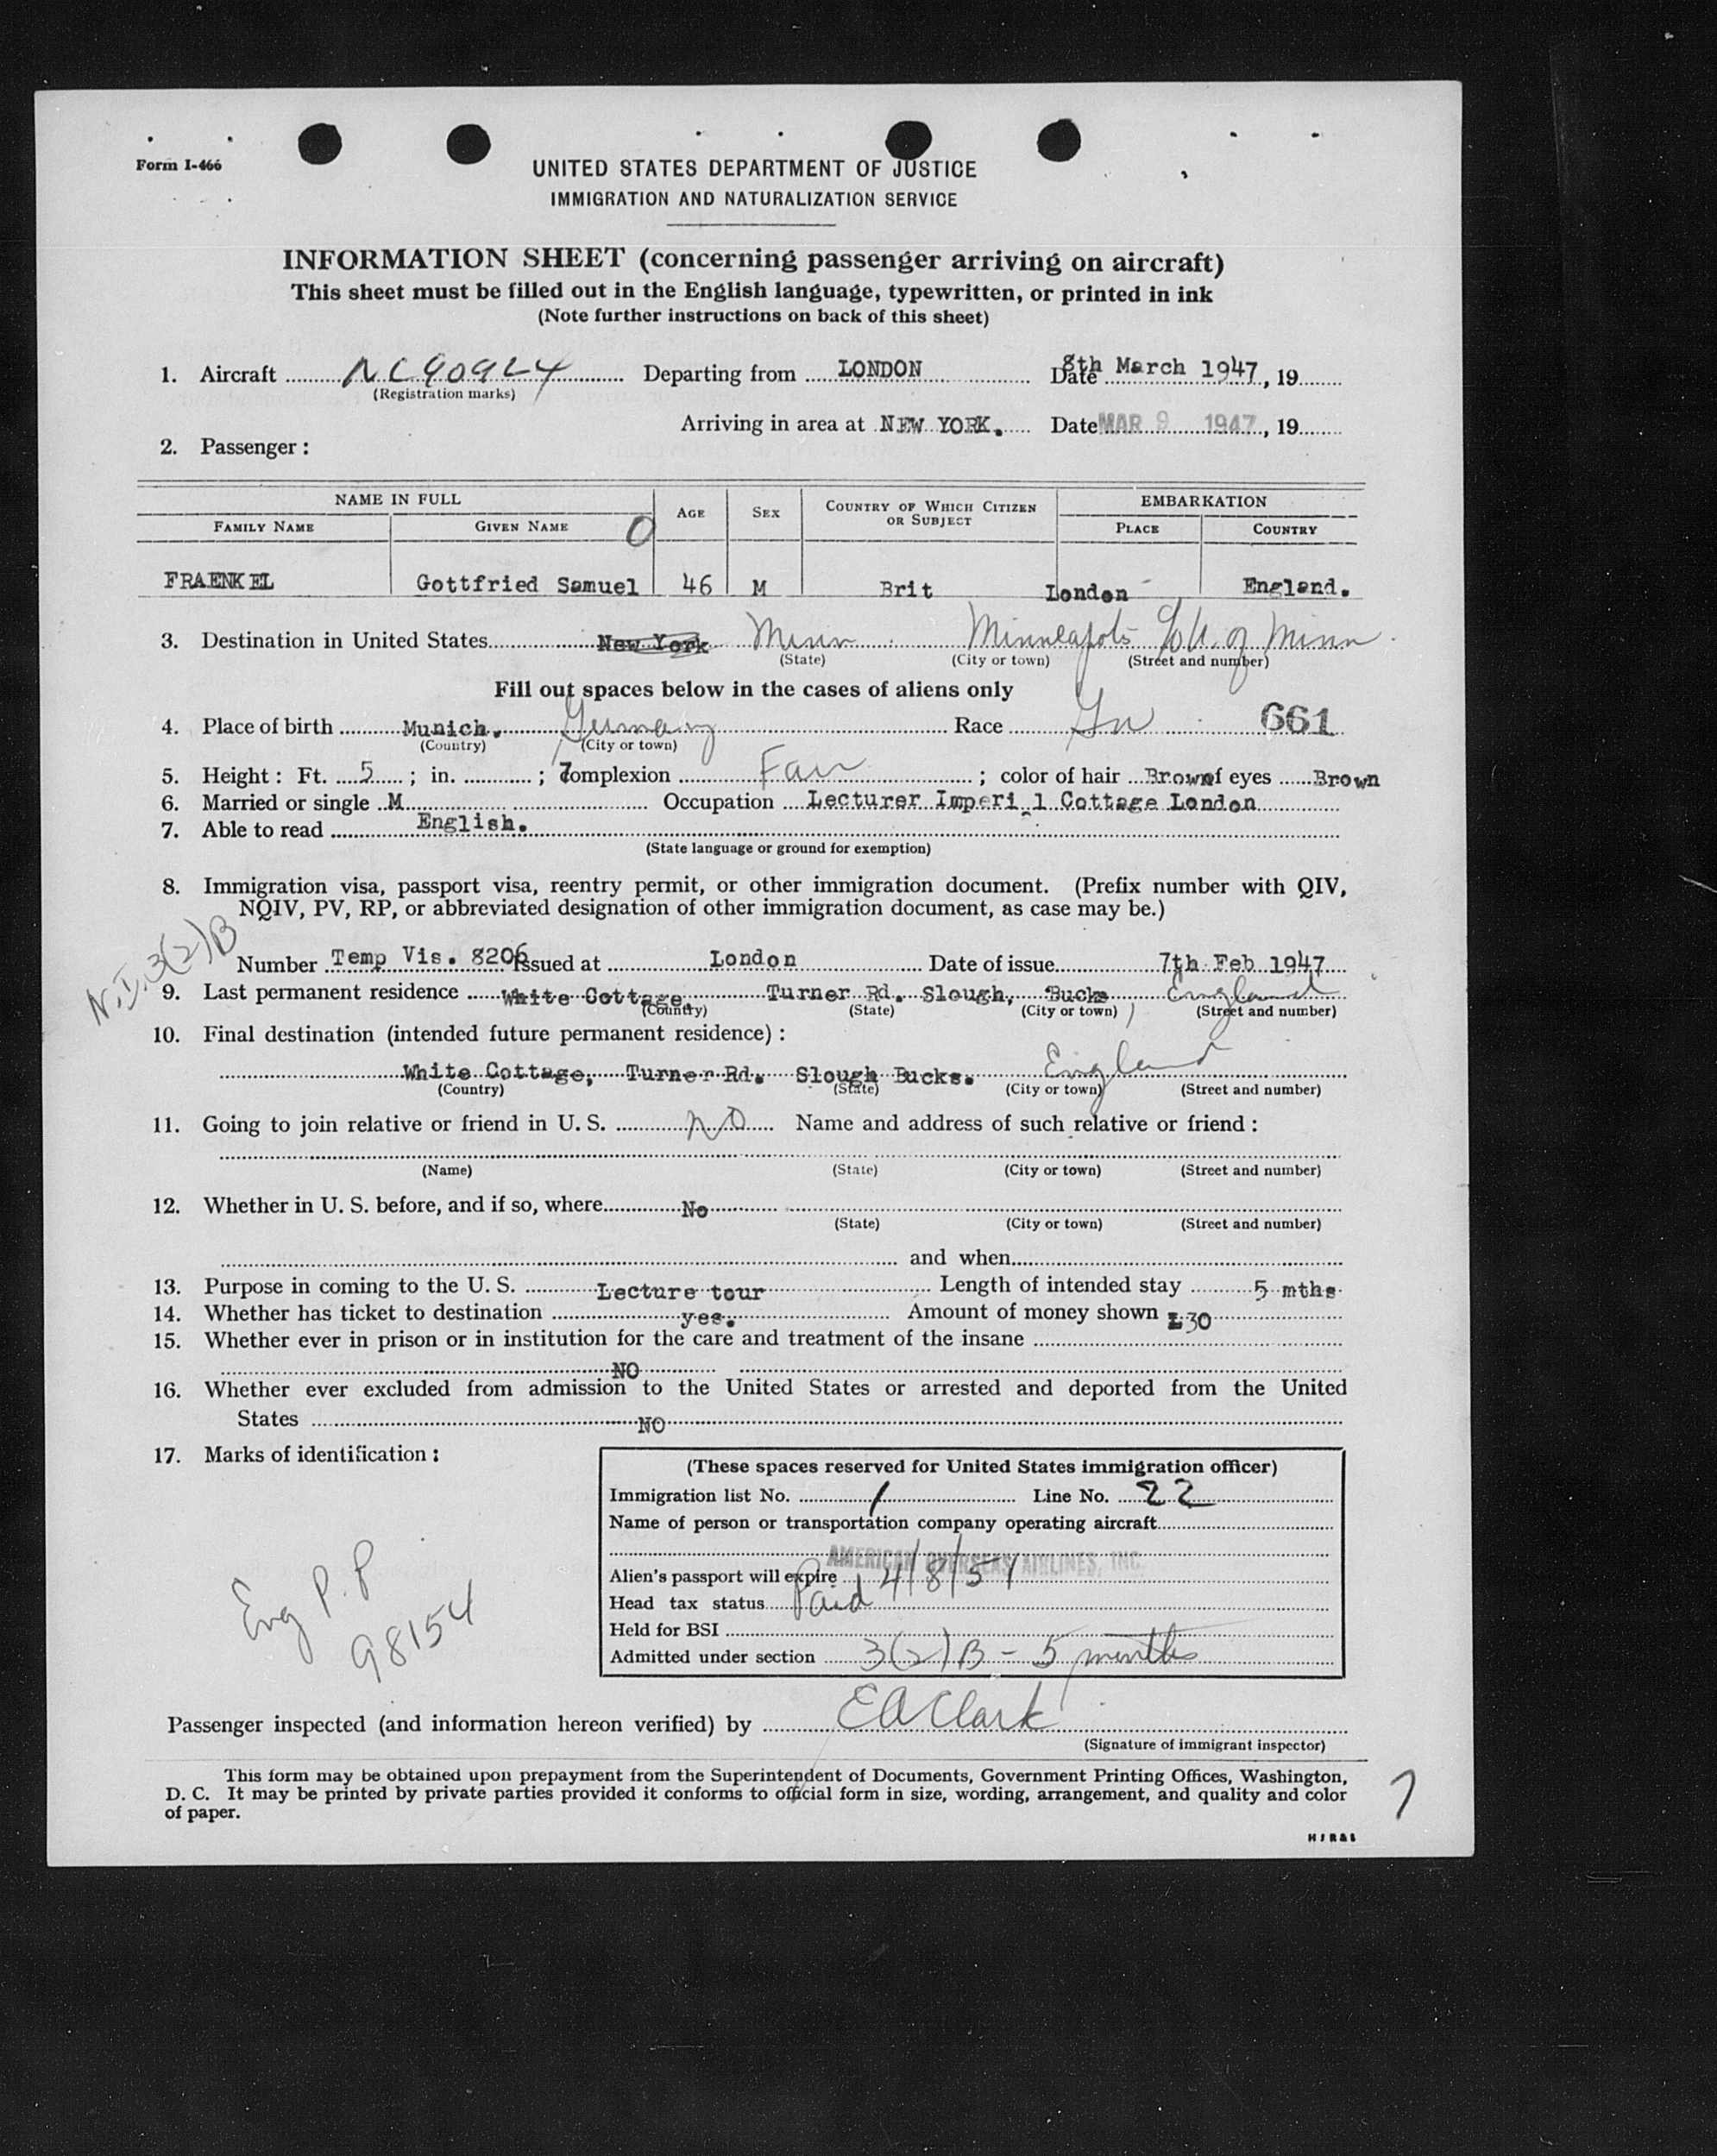 Form I-466
UNITED STATES DEPARTMENT OF JUSTICE
IMMIGRATION AND NATURALIZATION SERVICE
INFORMATION SHEET (concerning passenger arriving on aircraft)
This sheet must be filled out in the English language, typewritten, or printed in ink
(Note further instructions on back of this sheet)
1. Aircraft NC90924 Departing from LONDON Date 8th March 1947, 19
(Registration marks)
Arriving in area at NEW YORK. Date MAR 9 1947, 19
2. Passenger:
NAME IN FULL AGE SEX COUNTRY OF WHICH CITIZEN OR SUBJECT EMBARKATION
FAMILY NAME GIVEN NAME O PLACE COUNTRY
FRAENKEL Gottfried Samuel 46 M Brit London England.
3. Destination in United States New York Minn Minneapolis c/o U. of Minn
(State) (City or town) (Street and number)
Fill out spaces below in the cases of aliens only
4. Place of birth Munich. Germany Race 661
(Country) (City or town)
5. Height: Ft. 5; in. ; 7 complexion Fair; color of hair Brown of eyes Brown
6. Married or single M Occupation Lecturer Imperi l Cottage London
7. Able to read English.
(State language or ground for exemption)
8. Immigration visa, passport visa, reentry permit, or other immigration document. (Prefix number with QIV,
NQIV, PV, RP, or abbreviated designation of other immigration document, as case may be.)
N.I. 3(2)B
Number Temp Vis. 8206 Issued at London Date of issue 7th Feb 1947
9. Last permanent residence White Cottage, Turner Rd. Slough, Bucks England
(Country) (State) (City or town) (Street and number)
10. Final destination (intended future permanent residence):
White Cottage, Turner Rd. Slough Bucks. England
(Country) (State) (City or town) (Street and number)
11. Going to join relative or friend in U. S. NO Name and address of such relative or friend:
(Name) (State) (City or town) (Street and number)
12. Whether in U. S. before, and if so, where No
(State) (City or town) (Street and number)
and when
13. Purpose in coming to the U. S. Lecture tour Length of intended stay 5 mths
14. Whether has ticket to destination yes. Amount of money shown £30
15. Whether ever in prison or in institution for the care and treatment of the insane
NO
16. Whether ever excluded from admission to the United States or arrested and deported from the United
States NO
17. Marks of identification:
(These spaces reserved for United States immigration officer)
Immigration list No. 1 Line No. 22
Name of person or transportation company operating aircraft
AMERICAN OVERSEAS AIRLINES, INC.
Alien's passport will expire 4/8/51
Head tax status Paid
Held for BSI
Admitted under section 3(2)B - 5 months
Eng P.P
98154
Passenger inspected (and information hereon verified) by EA Clark
(Signature of immigrant inspector)
This form may be obtained upon prepayment from the Superintendent of Documents, Government Printing Offices, Washington,
D. C. It may be printed by private parties provided it conforms to official form in size, wording, arrangement, and quality and color
of paper.
7